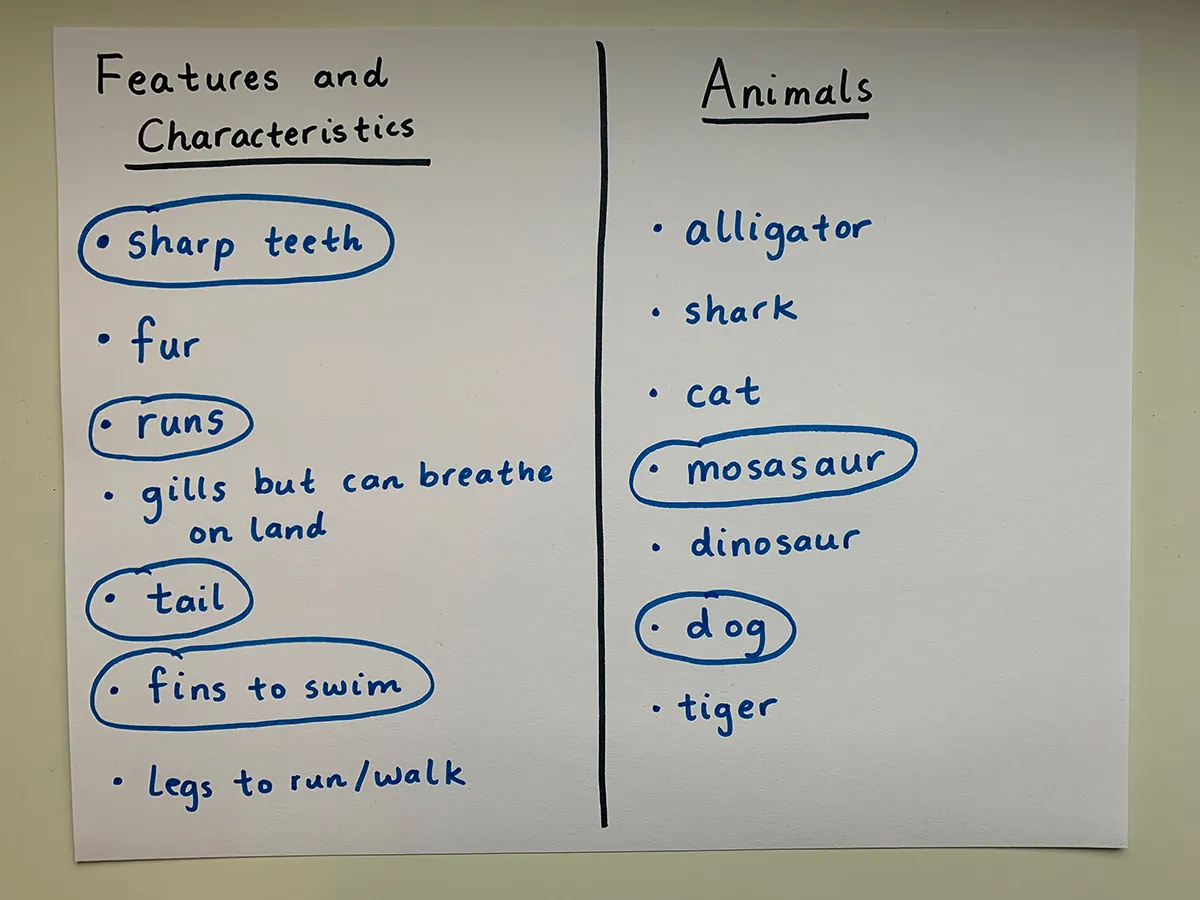 Features and
Characteristics
• sharp teeth
• fur
• runs
• gills but can breathe
on land
• tail
• fins to swim
• Legs to run/walk
Animals
• alligator
• shark
• cat
• mosasaur
• dinosaur
• dog
• tiger